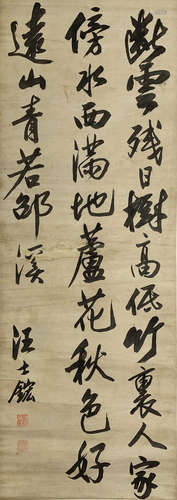 斷雲残日樹髙低竹裏人家
傍水西滿地蘆花秋色好
遠山青若邵溪
汪士鋐